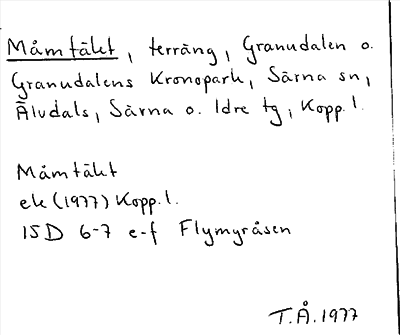 Måmtäkt, terräng, Granudalen o.
Granudalens Kronopark, Särna sn,
Älvdals, Särna o. Idre tg, Kopp.l.
Måmtäkt
ek (1977) Kopp.l.
15D 6-7 e-f Flymyråsen
T.Å.1977